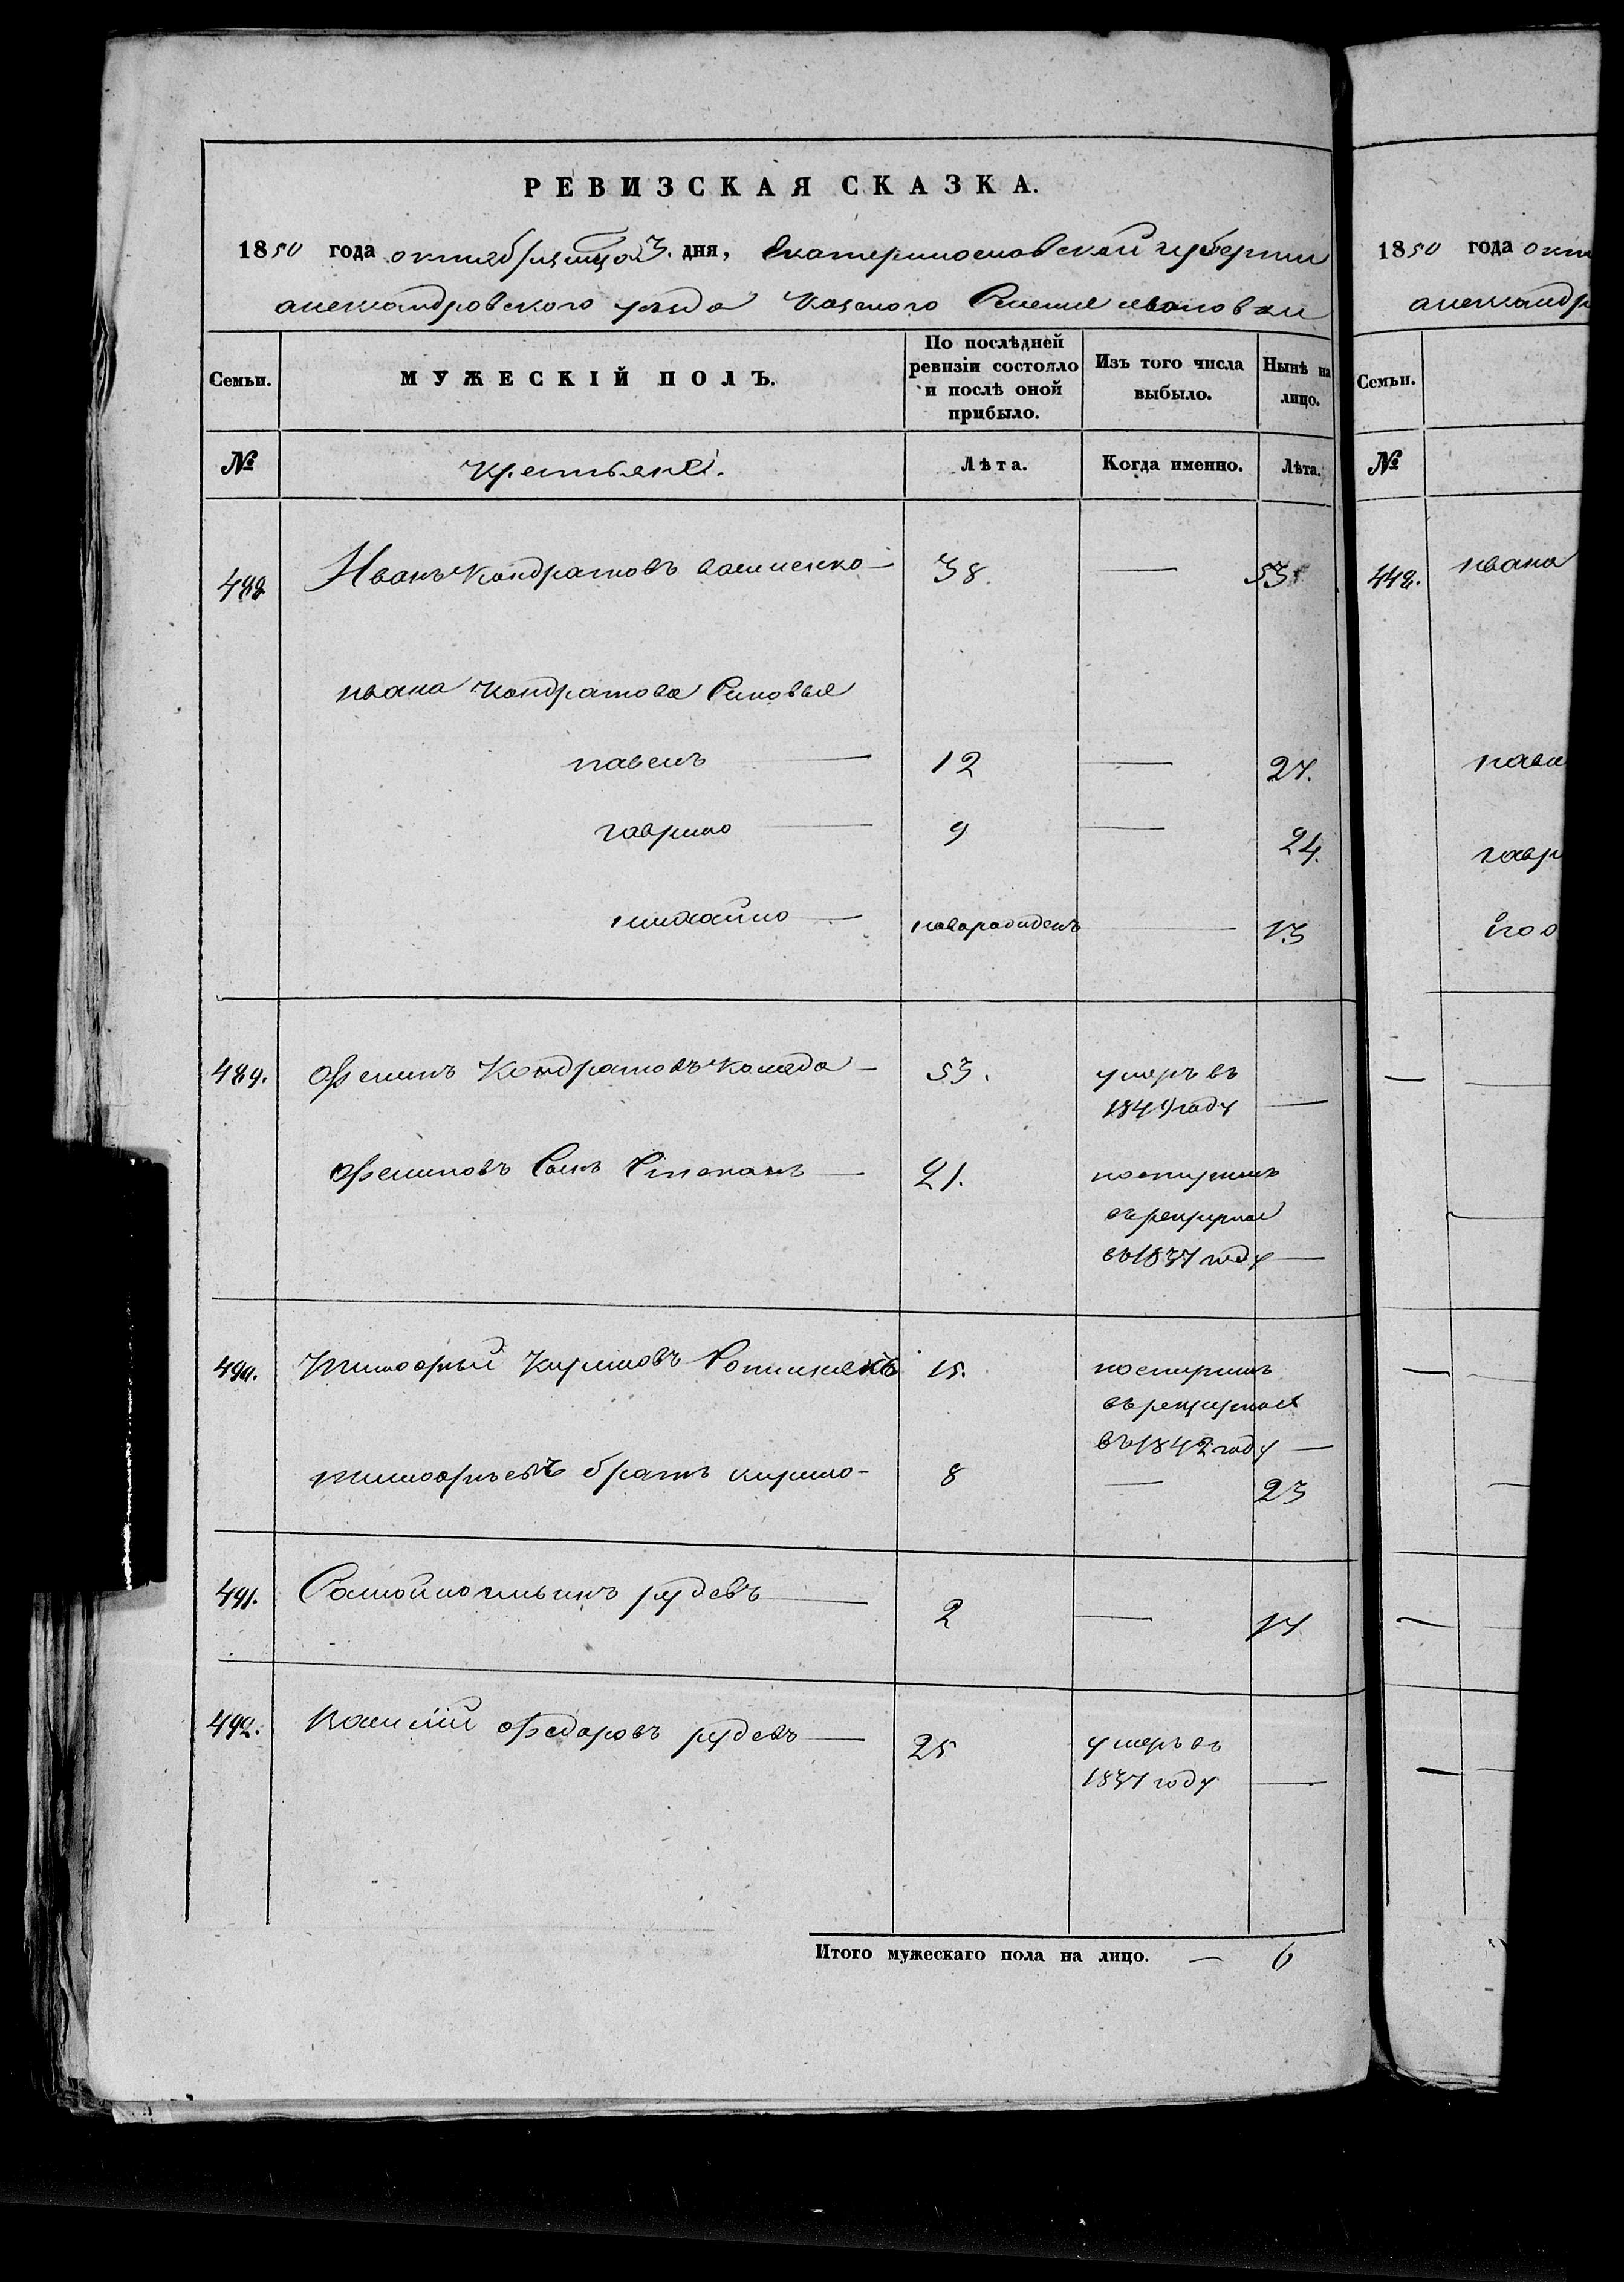 РЕВИЗСКАЯ СКАЗКА.
1850 года октября месяца 3. дня, Екатеринославской губернии
александровского уезда Казеного Селения ивановки
Семьи. МУЖЕСКІЙ ПОЛЪ. По послѣдней ревизіи состояло и послѣ оной прибыло. Изъ того числа выбыло. Нынѣ на лицо.
№ Крестьяне. Лѣта. Когда именно. Лѣта.
488 Иванъ Кондратовъ 38. — 53
ивана Кондратова Синовья
павелъ — 12 — 27.
гаврило — 9 — 24.
михайло — новорожденъ — 13
489. Филипъ Кондратовъ Коляда — 53. умеръ въ
1849 году —
Филиповъ Сынъ Степанъ — 21. поступилъ
въ рекруты
въ 1837 году —
490. Тимофый Кириловъ 15. поступилъ
въ рекруты
въ 1842 году —
тимофыевъ братъ кирило - 8 — 23
491. Самойло ильинъ рудевъ — 2 — 17
492. Василий Федоровъ рудевъ — 25 умеръ въ
1837 году —
Итого мужескаго пола на лицо. — 6
1850 года окт
александр
Семьи.
№
448. ивана
павл
гавр